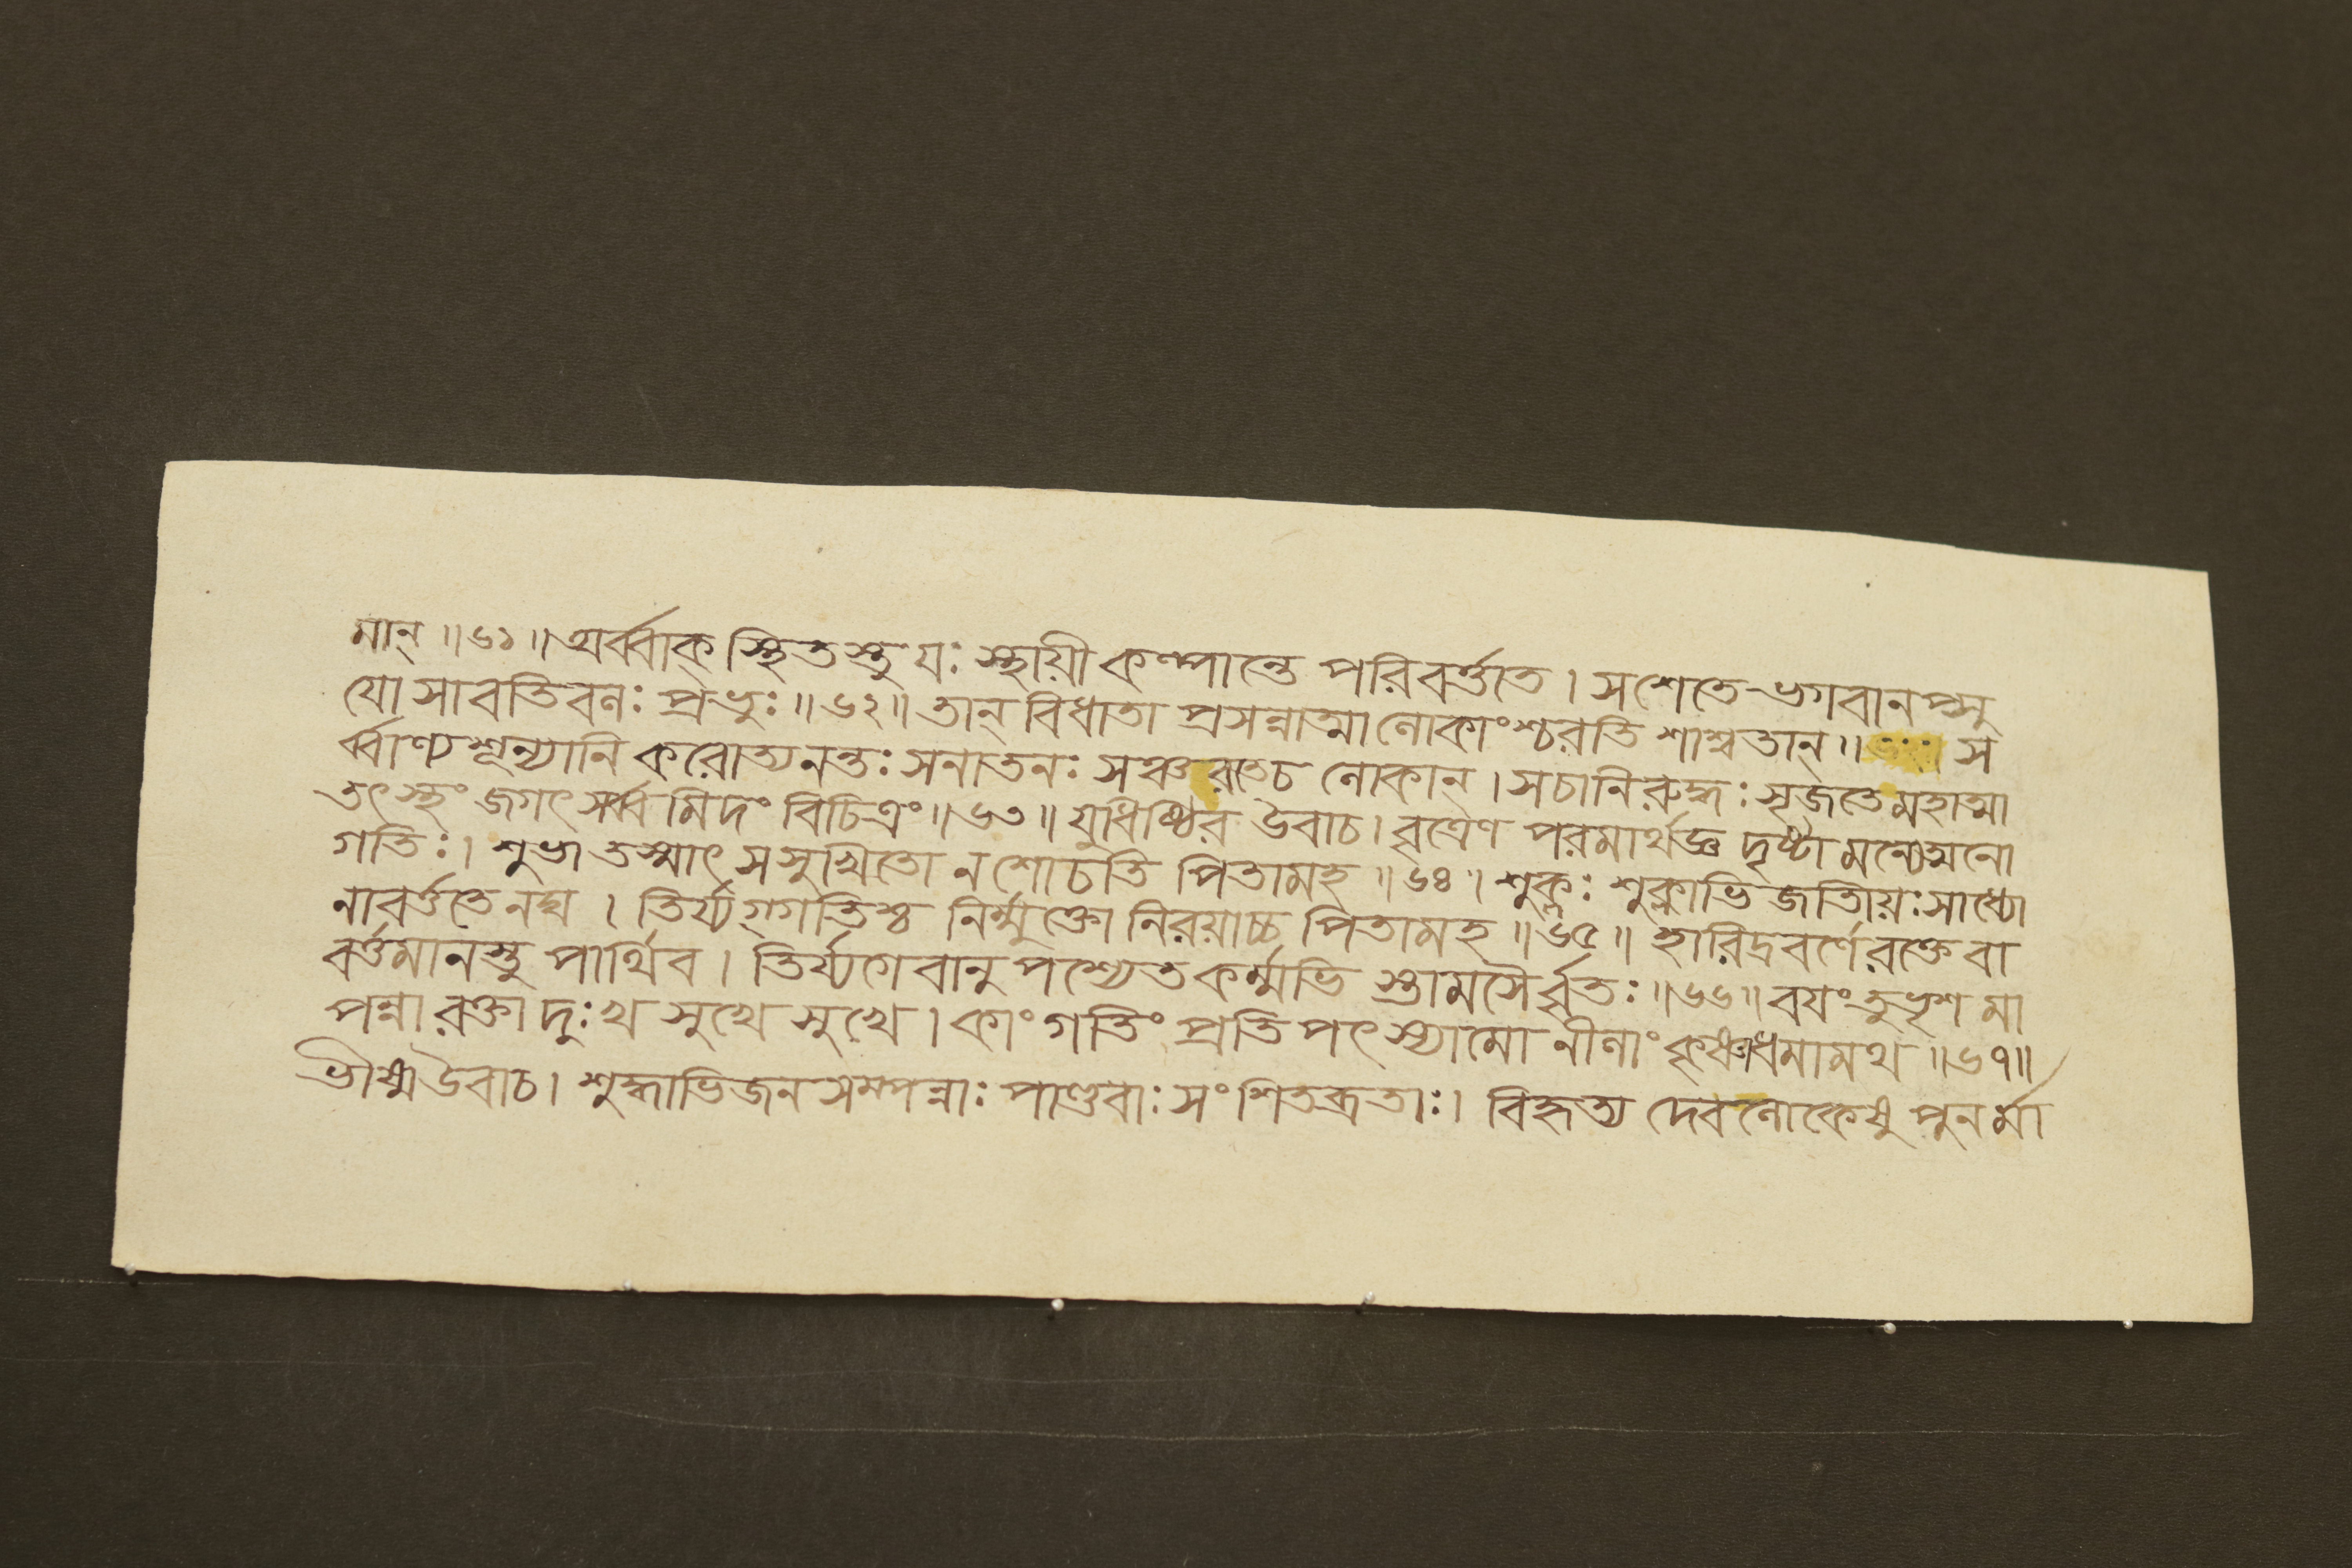 মান্ ॥৬১॥ অর্ব্বাক্ স্থিতস্তু যঃ স্থায়ী কল্পান্তে পরিবর্ত্ততে । সশেতে ভগবানপ্সু
যোসাবতিবলঃ প্রভুঃ ॥৬২॥ তান্ বিধাতা প্রসন্নাত্মা লোকাংশ্চরতি শাশ্বতান্ ॥ স
র্ব্বাণ্যশূন্যানি করোত্যনন্তঃ সনাতনঃ সঞ্চরতেচ লোকান্ । সচানিরুদ্ধঃ সৃজতে মহাত্মা
তৎস্থং জগৎ সর্ব্বমিদং বিচিত্রং ॥৬৩॥ যুধিষ্ঠির উবাচ । বৃত্রেণ পরমার্থজ্ঞ দৃষ্টা মন্যেত্মনো
গতিঃ । শুভা তস্মাৎ সসুখিতো ন শোচতি পিতামহ ॥৬৪॥ শুক্লঃ শুক্লাভিজাতিয়ঃ সাধ্যো
নাবর্ত্ততে নঘ । তির্য্যগ্গতিশ্চ নির্ম্মুক্তো নিরয়াচ্চ পিতামহ ॥৬৫॥ হারিদ্রবর্ণে রক্তে বা
বর্ত্তমানস্তু পার্থিব । তির্য্যগেবানুপশ্যেত কর্ম্মভি স্তামসৈর্ব্বৃতঃ ॥৬৬॥ বয়ংতু ভৃশমা
পন্না রক্তা দুঃখ সুখে সুখে । কাং গতিং প্রতিপৎস্যামো নীলাং কৃষ্ণাধমামথ ॥৬৭॥
ভীষ্মউবাচ । শুদ্ধাভিজনসম্পন্নাঃ পাণ্ডবাঃ সংশিতব্রতাঃ । বিহৃত্য দেবলোকেষু পুনর্মা